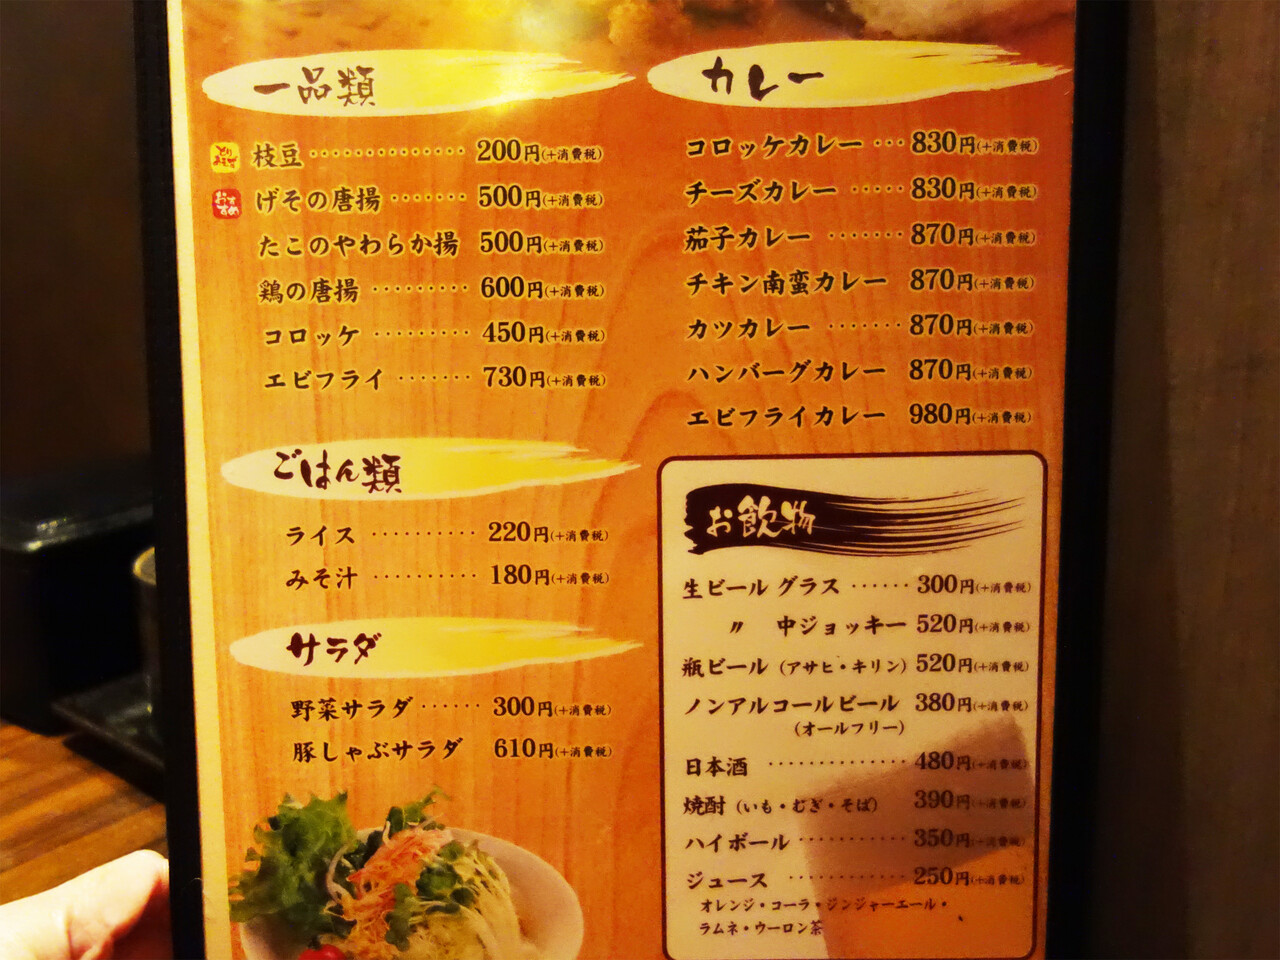 一品類
とりあえず 枝豆 ・・・・・・・・・・・・・・ 200円(+消費税)
おすすめ げその唐揚 ・・・・・・・ 500円(+消費税)
たこのやわらか揚 500円(+消費税)
鶏の唐揚 ・・・・・・・・・ 600円(+消費税)
コロッケ ・・・・・・・・・ 450円(+消費税)
エビフライ ・・・・・・・ 730円(+消費税)
ごはん類
ライス ・・・・・・・・・・ 220円(+消費税)
みそ汁 ・・・・・・・・・・ 180円(+消費税)
サラダ
野菜サラダ ・・・・・・ 300円(+消費税)
豚しゃぶサラダ 610円(+消費税)
カレー
コロッケカレー ・・・ 830円(+消費税)
チーズカレー ・・・・・ 830円(+消費税)
茄子カレー ・・・・・・・ 870円(+消費税)
チキン南蛮カレー 870円(+消費税)
カツカレー ・・・・・・・ 870円(+消費税)
ハンバーグカレー 870円(+消費税)
エビフライカレー 980円(+消費税)
お飲物
生ビール グラス ・・・・・・ 300円(+消費税)
〃 中ジョッキー 520円(+消費税)
瓶ビール (アサヒ・キリン) 520円(+消費税)
ノンアルコールビール 380円(+消費税)
(オールフリー)
日本酒 ・・・・・・・・・・・・・ 480円(+消費税)
焼酎 (いも・むぎ・そば) 390円(+消費税)
ハイボール ・・・・・・・・・・ 350円(+消費税)
ジュース ・・・・・・・・・・・ 250円(+消費税)
オレンジ・コーラ・ジンジャーエール・
ラムネ・ウーロン茶